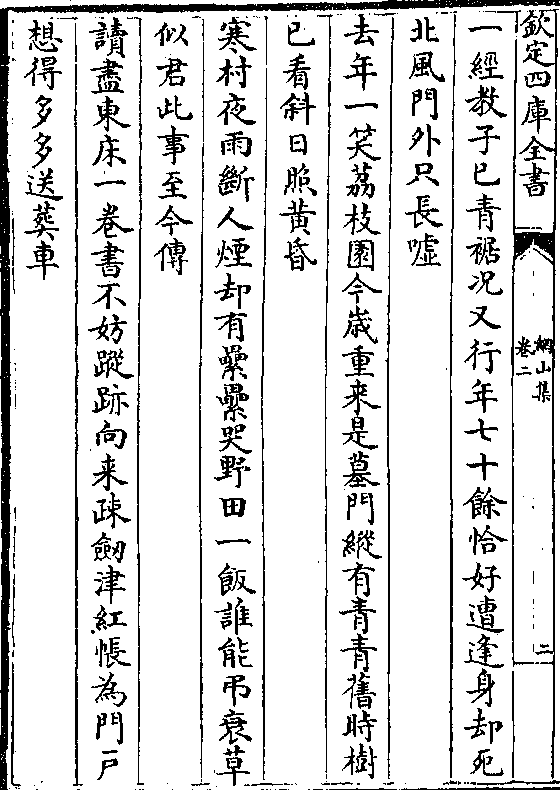 欽定四庫全書
網山集
卷二
二
一經教子已青裾况又行年七十餘恰好遭逢身却死
北風門外只長噓
去年一笑荔枝園今歲重來是墓門縱有青青舊時樹
已看斜日照黃昏
寒村夜雨斷人煙却有纍纍哭野田一飯誰能弔衰草
似君此事至今傳
讀盡東床一卷書不妨蹤跡向来踈劒津紅帳為門戸
想得多多送葬車